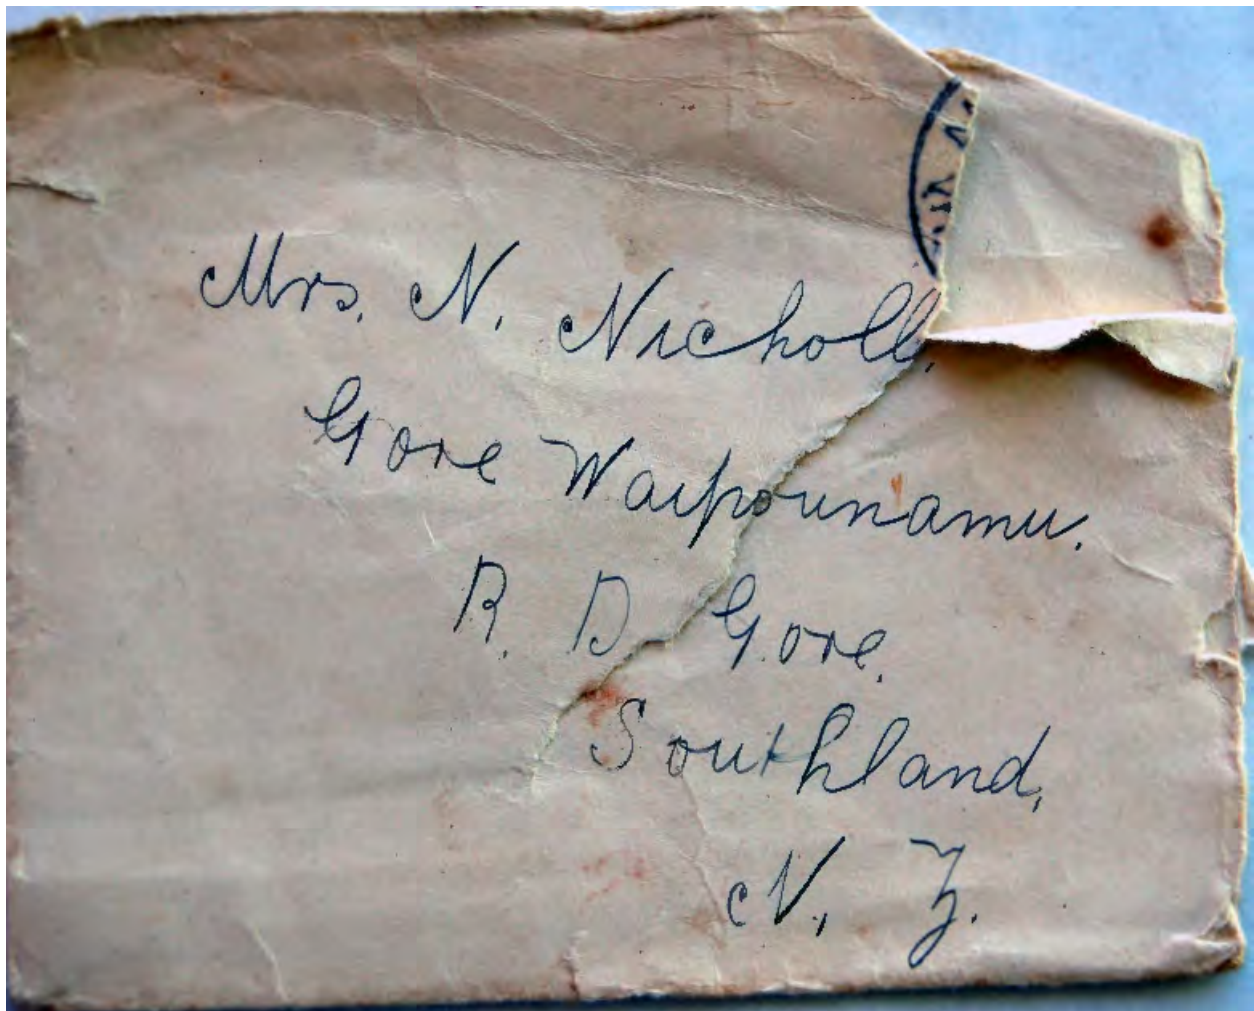 Mrs. N. Nicholl,
Gore Waipounamu.
R. D. Gore,
Southland,
N. Z.